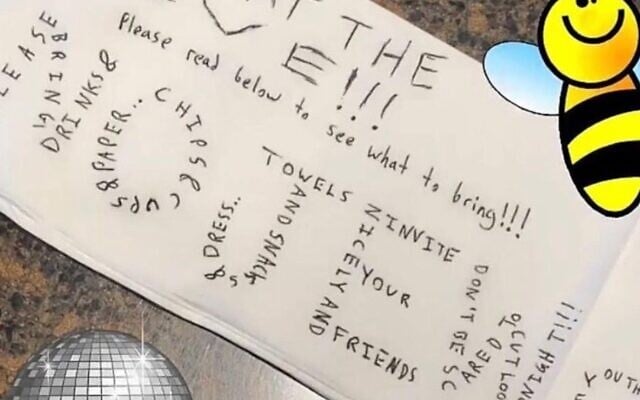 T THE
E!!!
Please read below to see what to bring!!!
LEASE
BRING
DRINKS &
CHIPS & CUPS
& PAPER..
TOWELS
AND SNACKS
& DRESS..
NICELY AND
INVITE
YOUR
FRIENDS
DON'T BE SC
ARED
TO CUT LOOT
ONIGHT!!!
YOUTH